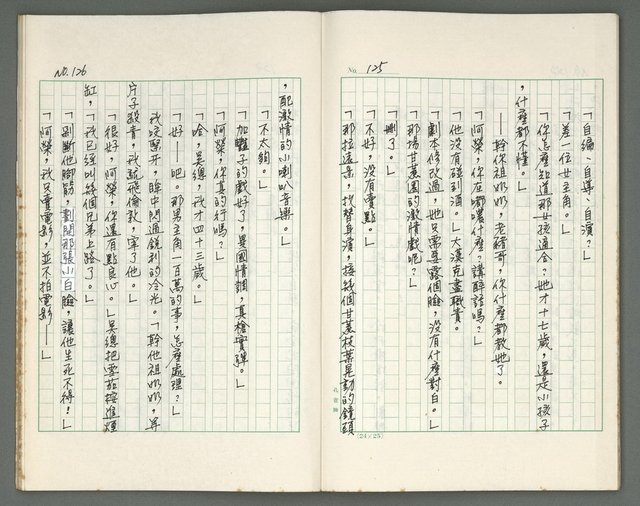 No. 125
「自編、自導、自演？」
「差一位女主角。」
「你怎麼知道那女孩適合？她才十七歲，還是小孩子
，什麼都不懂。」
——幹你祖奶奶，老豬哥，你什麼都教她了。
「阿榮，你在嘟噥什麼？講醉話嗎？」
「他沒有碰到酒。」大漢克盡職責。
「劇本修改過，她只需要露個臉，沒有什麼對白。」
「那場甘蔗園的激情戲呢？」
「刪了。」
「不好，沒有賣點。」
「那拉遠景，找替身演，接幾個甘蔗枝葉晃動的鏡頭
(24×25)
NO. 126
，配激情的小喇叭音樂。」
「不太夠。」
「加鬍子的戲好了，異國情調，真槍實彈。」
「阿榮，你真的行嗎？」
「哈，吳總，我才四十三歲。」
「好——吧。那男主角一百萬的事，怎麼處理？」
我咬緊牙，眸中閃過銳利的冷光。「幹他祖奶奶，等
片子殺青，我就飛倫敦，宰了他。」
「很好，阿榮，你還有點良心。」吳總把雪茄按進煙
缸，「我已經叫幾個兄弟上路了。」
「別斷他腳筋，劃開那張小白臉，讓他生死不得！」
「阿榮，我只賣電影，並不拍電影——」